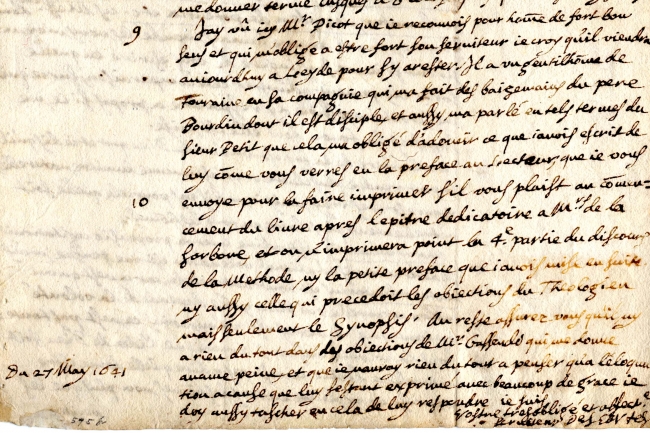 me donner terme jusques a
9
J'ay vû icy Mr. Picot que ie reconnois pour homme de fort bon
sens et qui m'oblige a estre fort son serviteur ie croy qu'il viendra
auiourdhuy a Leyde pour s'y arester. Il a vn gentilhome de
Touraine en sa compagnie qui m'a fait des baizemains du pere
Bourdin dont il est disciple, et aussy m'a parlé en tels termes du
sieur Petit que cela m'a obligé d'adoucir ce que i'auois escrit de
luy côme vous verres en la preface au Lecteur, que ie vous
10
envoye pour la faire imprimer s'il vous plaist au commen-
cement du livre apres l'epitre dedicatoire a Mrs. de la
Sorbone, et on n'imprimera point la 4e. partie du discours
de la Methode, ny la petite preface que i'auois mise en suite
ny aussy celle qui precedoit les obiections du Theologien
mais seulement le Synopsis. Au reste assurez vous qu'il n'y
a rien du tout dans des obiections de Mr. Gassendi qui me donne
aucune peine, et que ie n'auray rien du tout a penser qu'a l'elocu
tion a cause que luy s'estant exprimé avec beaucoup de grace ie
doy aussy tascher en cela de luy respondre ie suis
Vostre tres obligé et affecté
serviteur Des Cartes
Du 27 May 1641
595 b